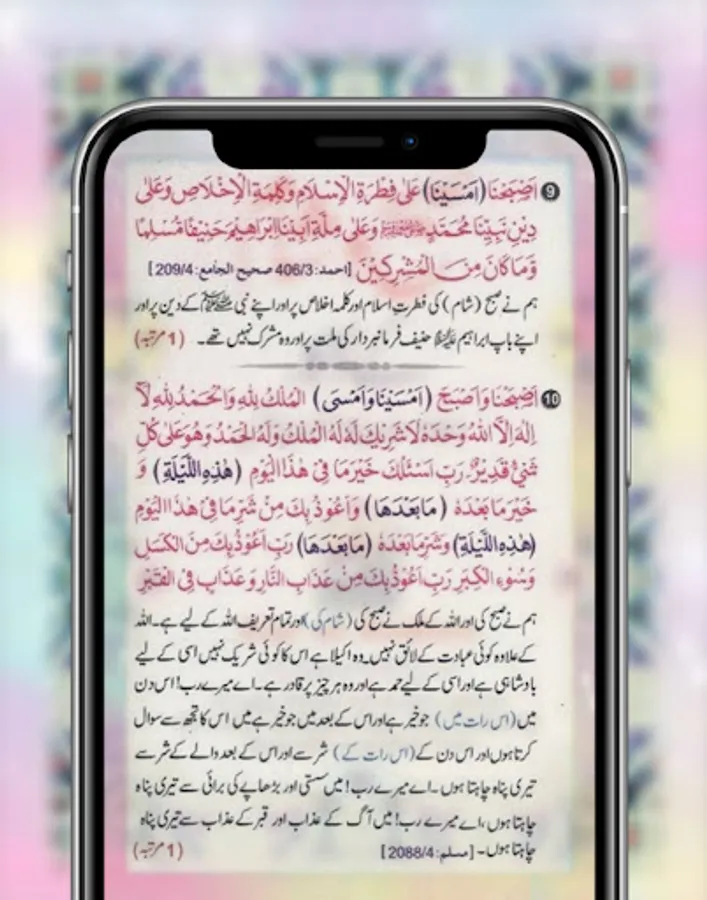 9 اَصْبَحْنَا (اَمْسَيْنَا) عَلٰى فِطْرَةِ الْاِسْلَامِ وَكَلِمَةِ الْاِخْلَاصِ وَعَلٰى
دِيْنِ نَبِيِّنَا مُحَمَّدٍ ﷺ وَعَلٰى مِلَّةِ اَبِيْنَا اِبْرَاهِيْمَ حَنِيْفًا مُّسْلِمًا
وَّمَا كَانَ مِنَ الْمُشْرِكِيْنَ [احمد: 406/3 صحيح الجامع: 209/4]
ہم نے صبح (شام) کی فطرتِ اسلام اور کلمہ اخلاص پر اور اپنے نبی ﷺ کے دین پر اور
اپنے باپ ابراہیم علیہ السلام حنیف فرمانبردار کی ملت پر اور وہ مشرک نہیں تھے۔ (1 مرتبہ)
10 اَصْبَحْنَا وَاَصْبَحَ (اَمْسَيْنَا وَاَمْسَى) الْمُلْكُ لِلّٰهِ وَالْحَمْدُ لِلّٰهِ لَآ
اِلٰهَ اِلَّا اللّٰهُ وَحْدَهٗ لَا شَرِيْكَ لَهٗ لَهُ الْمُلْكُ وَلَهُ الْحَمْدُ وَهُوَ عَلٰى كُلِّ
شَيْءٍ قَدِيْرٌ، رَبِّ اَسْئَلُكَ خَيْرَ مَا فِىْ هٰذَا الْيَوْمِ (هٰذِهِ اللَّيْلَةِ) وَ
خَيْرَ مَا بَعْدَهٗ (مَا بَعْدَهَا) وَاَعُوْذُ بِكَ مِنْ شَرِّ مَا فِىْ هٰذَا الْيَوْمِ
(هٰذِهِ اللَّيْلَةِ) وَشَرِّ مَا بَعْدَهٗ (مَا بَعْدَهَا) رَبِّ اَعُوْذُ بِكَ مِنَ الْكَسَلِ
وَسُوْءِ الْكِبَرِ رَبِّ اَعُوْذُ بِكَ مِنْ عَذَابِ النَّارِ وَعَذَابٍ فِى الْقَبْرِ
ہم نے صبح کی اور اللہ کے ملک نے صبح کی (شام کی) اور تمام تعریف اللہ کے لیے ہے۔ اللہ
کے علاوہ کوئی عبادت کے لائق نہیں۔ وہ اکیلا ہے اس کا کوئی شریک نہیں اسی کے لیے
بادشاہی ہے اور اسی کے لیے حمد ہے اور وہ ہر چیز پر قادر ہے۔ اے میرے رب! اس دن
میں (اس رات میں) جو خیر ہے اور اس کے بعد میں جو خیر ہے میں اس کا تجھ سے سوال
کرتا ہوں اور اس دن کے (اس رات کے) شر سے اور اس کے بعد والے کے شر سے
تیری پناہ چاہتا ہوں۔ اے میرے رب! میں سستی اور بڑھاپے کی برائی سے تیری پناہ
چاہتا ہوں، اے میرے رب! میں آگ کے عذاب اور قبر کے عذاب سے تیری پناہ
چاہتا ہوں۔ [مسلم: 2088/4] (1 مرتبہ)